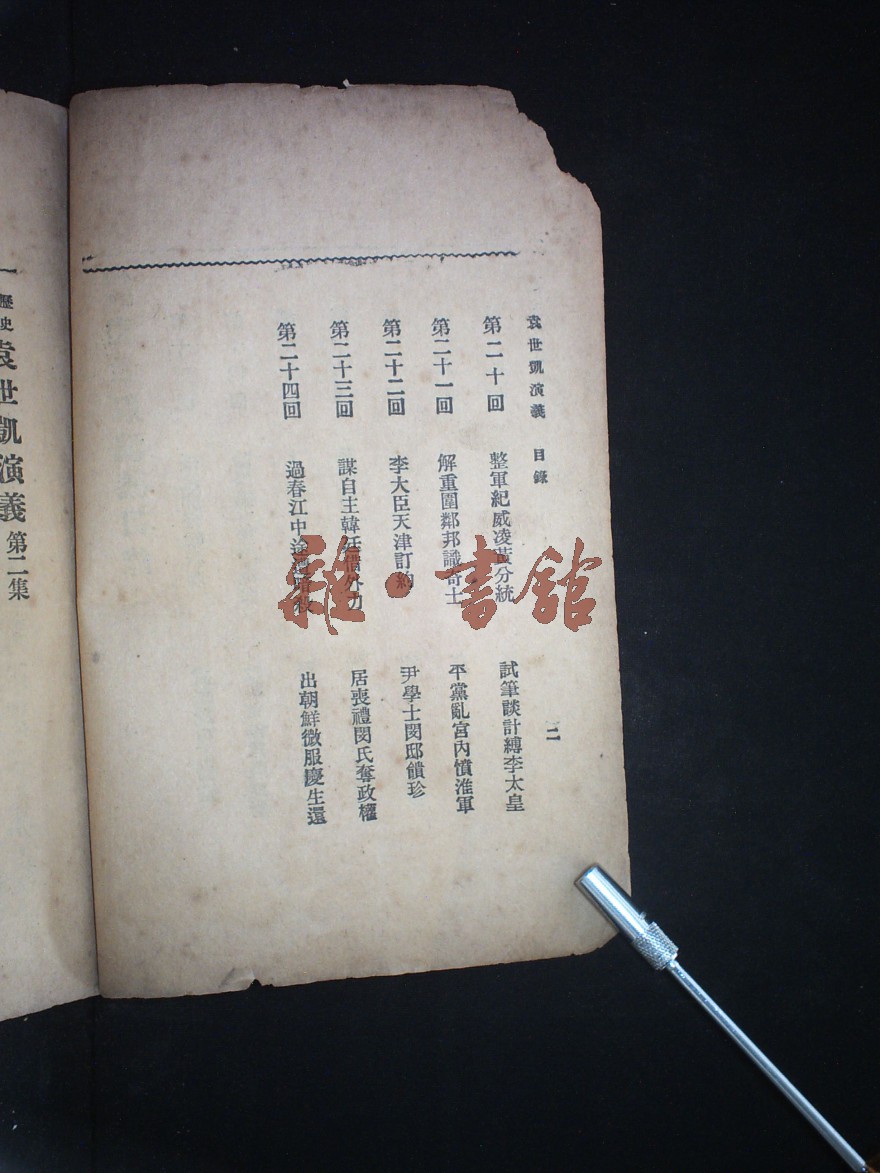 袁世凱演義 目錄 二
第二十回 整軍紀威凌黃分統 試筆談計縛李太皇
第二十一回 解重圍鄰邦識奇士 平黨亂宮內憤淮軍
第二十二回 李大臣天津訂約 尹學士閔邸饋珍
第二十三回 謀自主韓廷借外力 居喪禮閔氏奪政權
第二十四回 過春江中途遇暗殺 出朝鮮微服慶生還
歷史 袁世凱演義 第二集
雜·書館